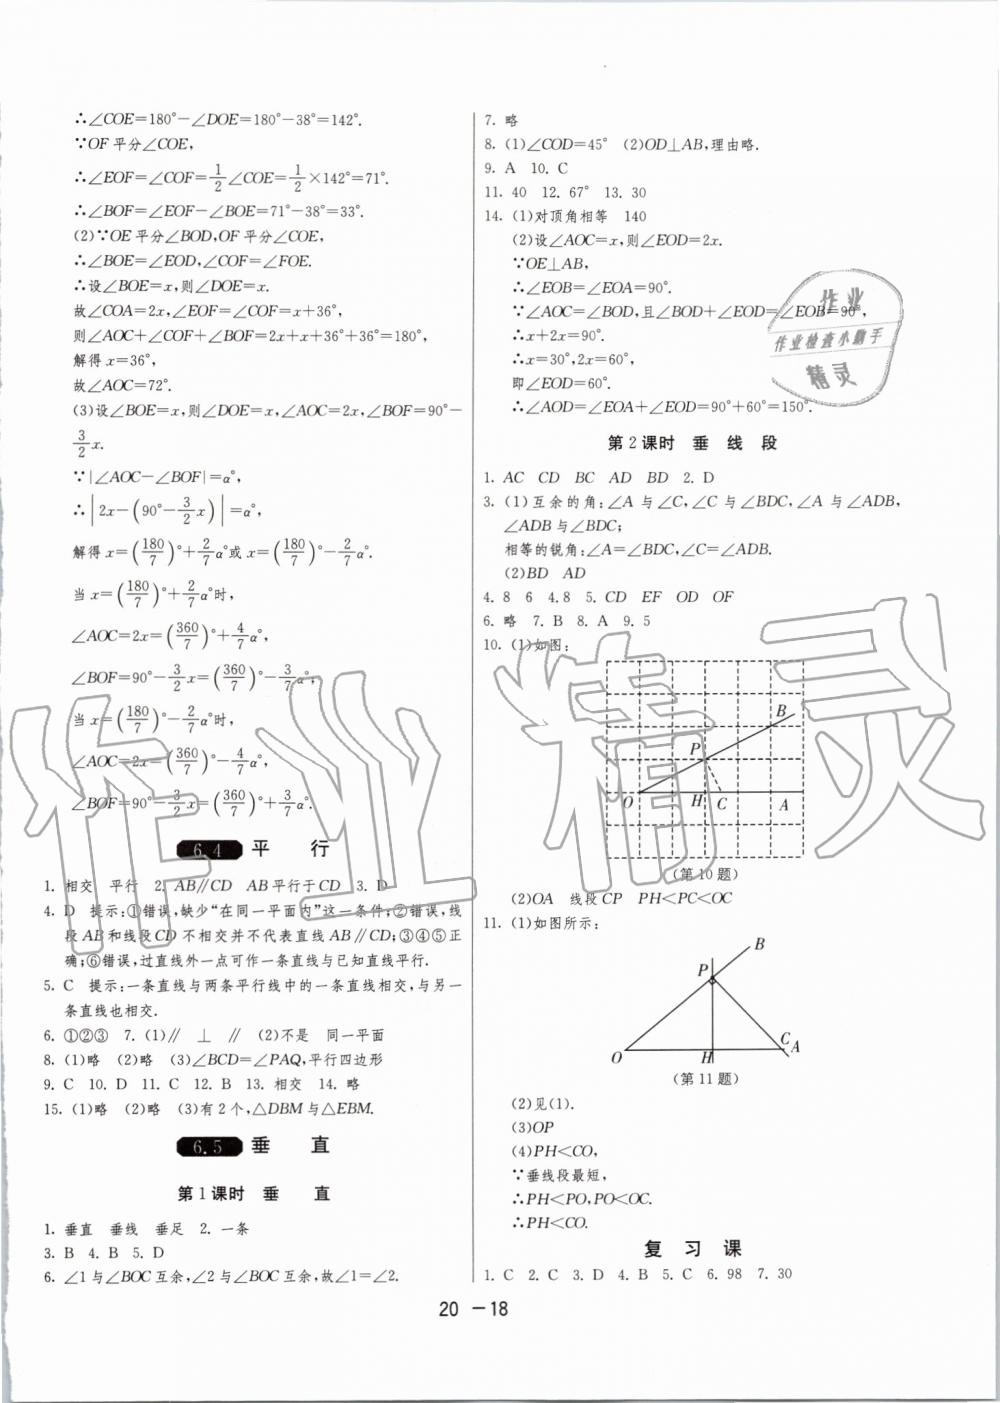 ∴∠COE=180°-∠DOE=180°-38°=142°.
∵OF平分∠COE,
∴∠EOF=∠COF=1/2∠COE=1/2×142°=71°.
∴∠BOF=∠EOF-∠BOE=71°-38°=33°.
(2)∵OE平分∠BOD,OF平分∠COE,
∴∠BOE=∠EOD,∠COF=∠FOE.
∴设∠BOE=x,则∠DOE=x.
故∠COA=2x,∠EOF=∠COF=x+36°,
则∠AOC+∠COF+∠BOF=2x+x+36°+36°=180°,
解得x=36°,
故∠AOC=72°.
(3)设∠BOE=x,则∠DOE=x,∠AOC=2x,∠BOF=90°-
3/2x.
∵|∠AOC-∠BOF|=α°,
∴|2x-(90°-3/2x)|=α°,
解得x=(180/7)°+2/7α°或x=(180/7)°-2/7α°.
当x=(180/7)°+2/7α°时,
∠AOC=2x=(360/7)°+4/7α°,
∠BOF=90°-3/2x=(360/7)°-3/7α°;
当x=(180/7)°-2/7α°时,
∠AOC=2x=(360/7)°-4/7α°,
∠BOF=90°-3/2x=(360/7)°+3/7α°.
6.4 平 行
1. 相交 平行 2. AB∥CD AB平行于CD 3. D
4. D 提示:①错误,缺少“在同一平面内”这一条件;②错误,线
段AB和线段CD不相交并不代表直线AB∥CD;③④⑤正
确;⑥错误,过直线外一点可作一条直线与已知直线平行.
5. C 提示:一条直线与两条平行线中的一条直线相交,与另一
条直线也相交.
6. ①②③ 7. (1)∥ ⊥ ∥ (2)不是 同一平面
8. (1)略 (2)略 (3)∠BCD=∠PAQ,平行四边形
9. C 10. D 11. C 12. B 13. 相交 14. 略
15. (1)略 (2)略 (3)有2个,△DBM与△EBM.
6.5 垂 直
第1课时 垂 直
1. 垂直 垂线 垂足 2. 一条
3. B 4. B 5. D
6. ∠1与∠BOC互余,∠2与∠BOC互余,故∠1=∠2.
7. 略
8. (1)∠COD=45° (2)OD⊥AB,理由略.
9. A 10. C
11. 40 12. 67° 13. 30
14. (1)对顶角相等 140
(2)设∠AOC=x,则∠EOD=2x.
∵OE⊥AB,
∴∠EOB=∠EOA=90°.
∵∠AOC=∠BOD,且∠BOD+∠EOD=∠EOB=90°,
∴x+2x=90°.
∴x=30°,2x=60°,
即∠EOD=60°.
∴∠AOD=∠EOA+∠EOD=90°+60°=150°.
作业
作业检查小助手
精灵
第2课时 垂 线 段
1. AC CD BC AD BD 2. D
3. (1)互余的角:∠A与∠C,∠C与∠BDC,∠A与∠ADB,
∠ADB与∠BDC;
相等的锐角:∠A=∠BDC,∠C=∠ADB.
(2)BD AD
4. 8 6 4.8 5. CD EF OD OF
6. 略 7. B 8. A 9. 5
10. (1)如图:
B
P
O H C A
(第10题)
(2)OA 线段CP PH<PC<OC
11. (1)如图所示:
B
P
O H C A
(第11题)
(2)见(1).
(3)OP
(4)PH<CO,
∵垂线段最短,
∴PH<PO,PO<OC.
∴PH<CO.
复 习 课
1. C 2. C 3. D 4. B 5. C 6. 98 7. 30
20 -18
作业精灵